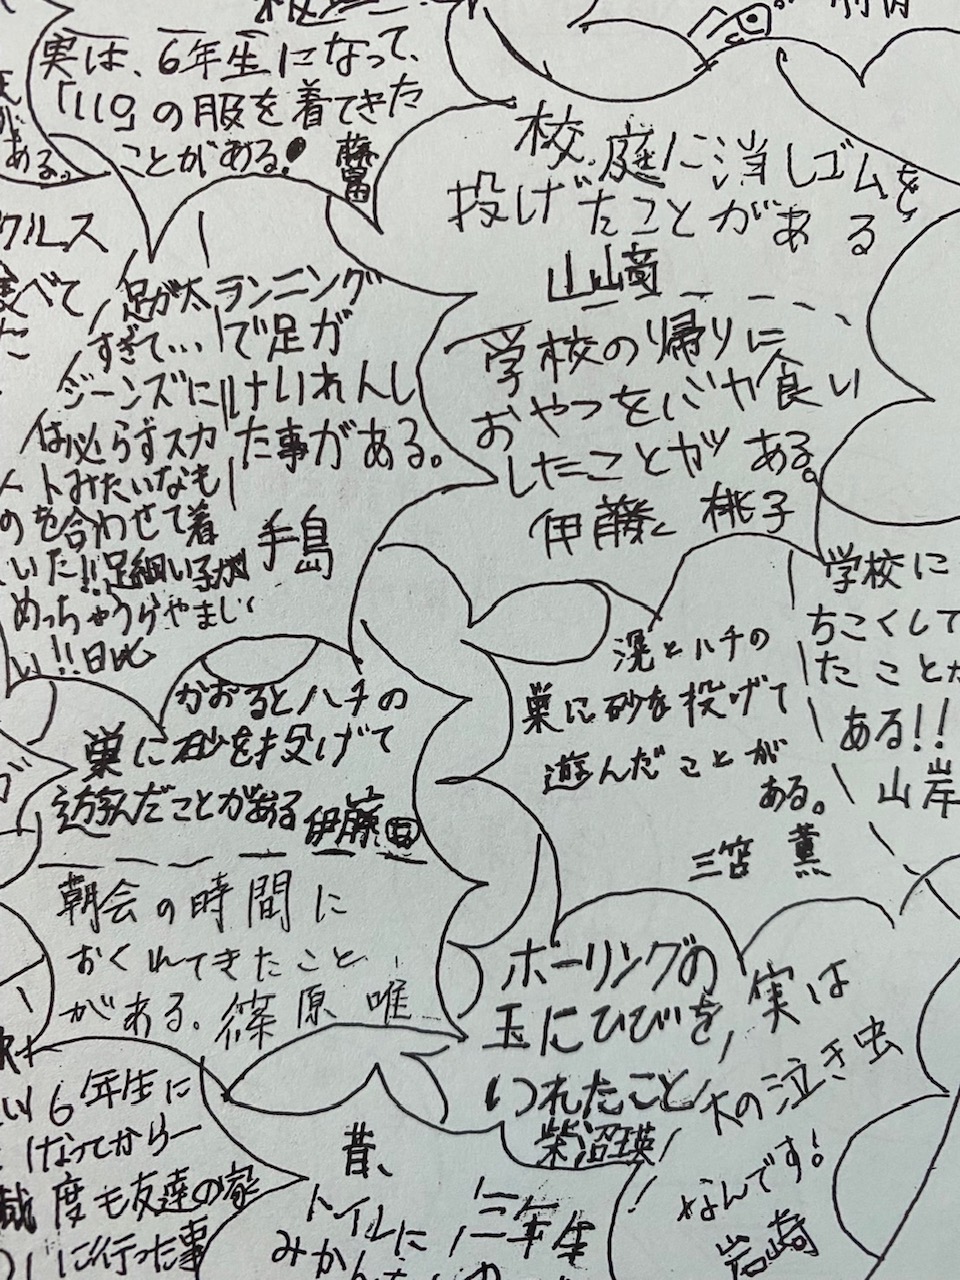 実は、6年生になって、
「110」の服を着てきた
ことがある!
ある。
校庭に消しゴムを
投げたことがある
山﨑
クルス
食べて
足が太
すぎて…
ジーンズに
は必らずスカ
ートみたいなも
のを合わせて着
いた!!足細い子が
めっちゃうらやまし
い!!日比
ランニング
で足が
けいれんし
た事がある。
手島
学校の帰りに
おやつをバカ食い
したことがある。
伊藤 桃子
学校に
ちこくして
たことが
ある!!
山岸
かおるとハチの
巣に砂を投げて
遊んだことがある 伊藤
滉とハチの
巣に砂を投げて
遊んだことが
ある。
三笘 薫
朝会の時間に
おくれてきたこと
がある。篠原 唯
ボーリングの
玉にひびを
いれたこと
柴沼瑛
実は
大の泣き虫
なんです!
岩崎
6年生に
なってから一
度も友達の家
に行った事
昔、
トイレに
みかん
三年生